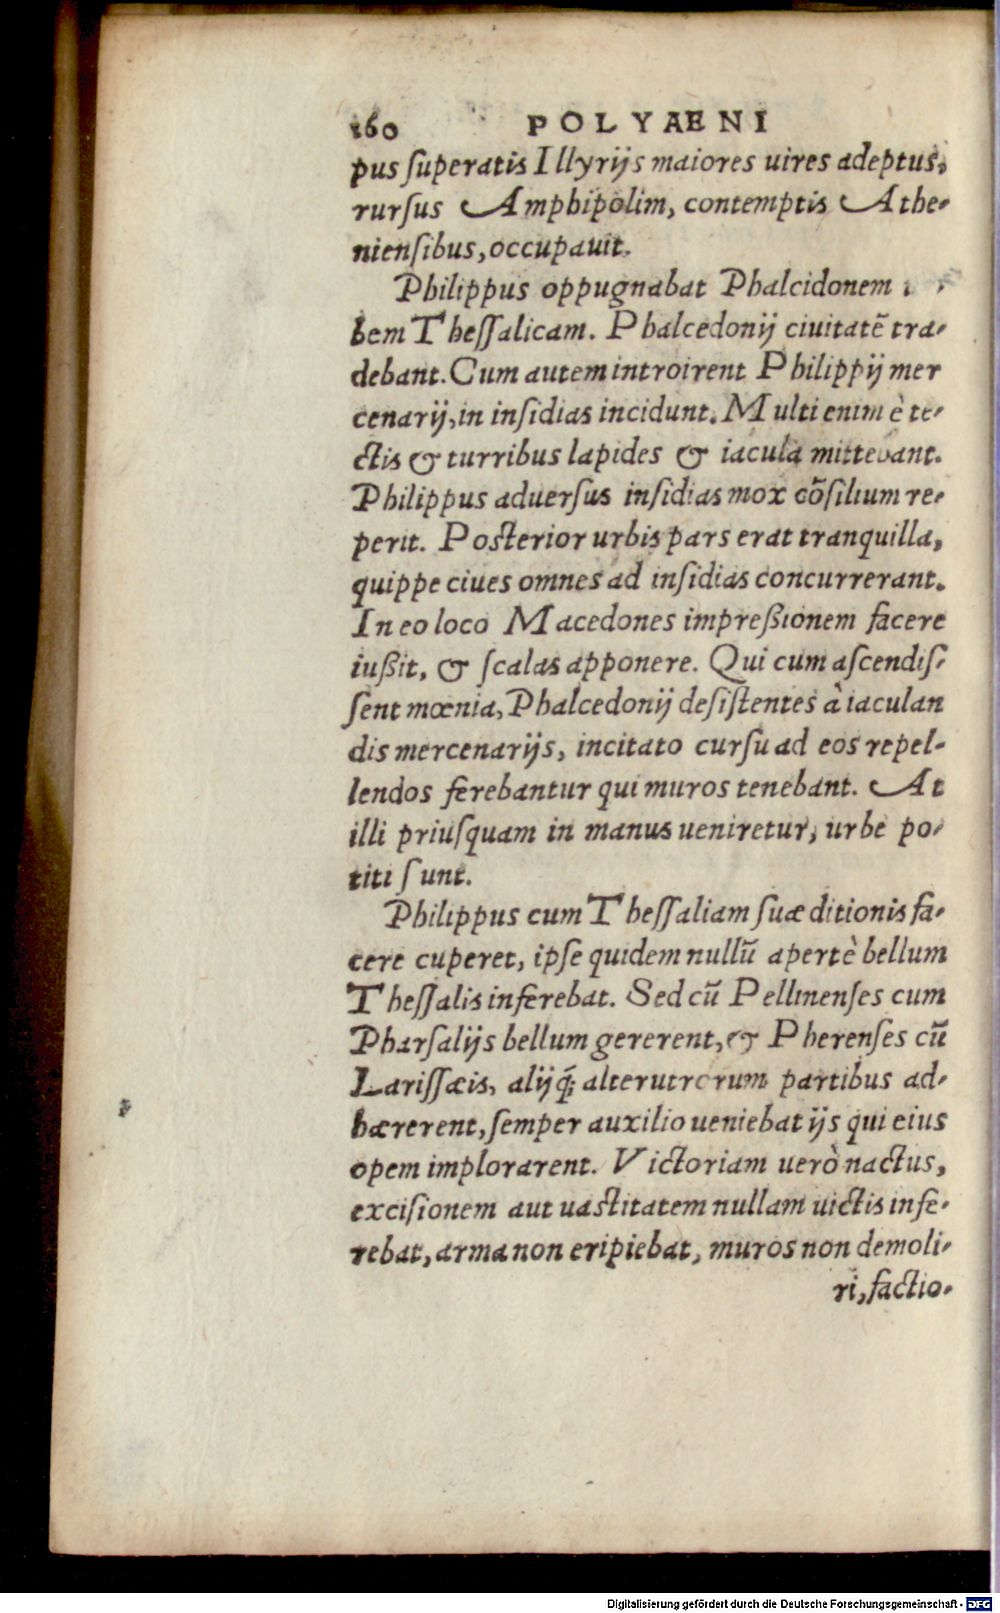 160 POLYAENI
pus ſuperatis Illyrijs maiores uires adeptus,
rurſus Amphipolim, contemptis Athe-
nienſibus, occupauit.
Philippus oppugnabat Phalcidonem
bem Theſſalicam. Phalcedonij ciuitatē tra-
debant. Cum autem introirent Philippij mer
cenarij, in inſidias incidunt. Multi enim è te-
ctis & turribus lapides & iacula mittebant.
Philippus aduerſus inſidias mox cōſilium re-
perit. Posterior urbis pars erat tranquilla,
quippe ciues omnes ad inſidias concurrerant.
In eo loco Macedones impreßionem facere
iußit, & ſcalas apponere. Qui cum aſcendiſ-
ſent mœnia, Phalcedonij deſiſtentes à iaculan
dis mercenarijs, incitato curſu ad eos repel-
lendos ferebantur qui muros tenebant. At
illi priuſquam in manus ueniretur, urbe po-
titi ſunt.
Philippus cum Theſſaliam ſuæ ditionis fa-
cere cuperet, ipſe quidem nullū apertè bellum
Theſſalis inferebat. Sed cū Pellinenſes cum
Pharſalijs bellum gererent, & Pherenſes cū
Lariſſæis, alijq́; alterutrorum partibus ad-
hærerent, ſemper auxilio ueniebat ijs qui eius
opem implorarent. Victoriam uerò nactus,
exciſionem aut uastitatem nullam uictis infe-
rebat, arma non eripiebat, muros non demoli-
ri, factio-
Digitalisierung gefördert durch die Deutsche Forschungsgemeinschaft - DFG